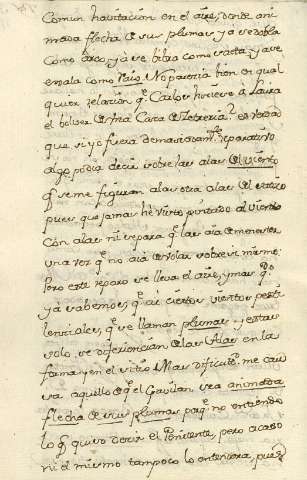 comun havitacion en el aire, donde ani
mada flecha de sus plumas ya se dobla
como arco, ya se libra como saeta, ya se
exala como Rayo. No parecia bien en qual
quier relacion qe. Carlos hiciere à Laura
el bolver de una Caza de Zetreria? es verdad
que si yo fuera demasiadamte. reparativo
algo podia decir sobre las alas del viento
q se me figuran à las otra alas de el
pues que jamas he visto pintado al viento
con alas, ni repara q las aia de menester
una vez q no aia de volar sobre si mismo.
Pero este reparo se lleva el aire, y mas qdo
ya sabemos, q ai ciertos vientos pesti
lenciales, q se llaman plumas y estas
solo se diferencian de las Alas en la
forma y en el sitio. Mas dificultd. me cau
sa aquello de q el Gavilan sea animada
flecha de sus plumas porq no entiendo
lo q quiso decir el Penitente, pero acaso
ni el mismo tampoco lo entendera, pues